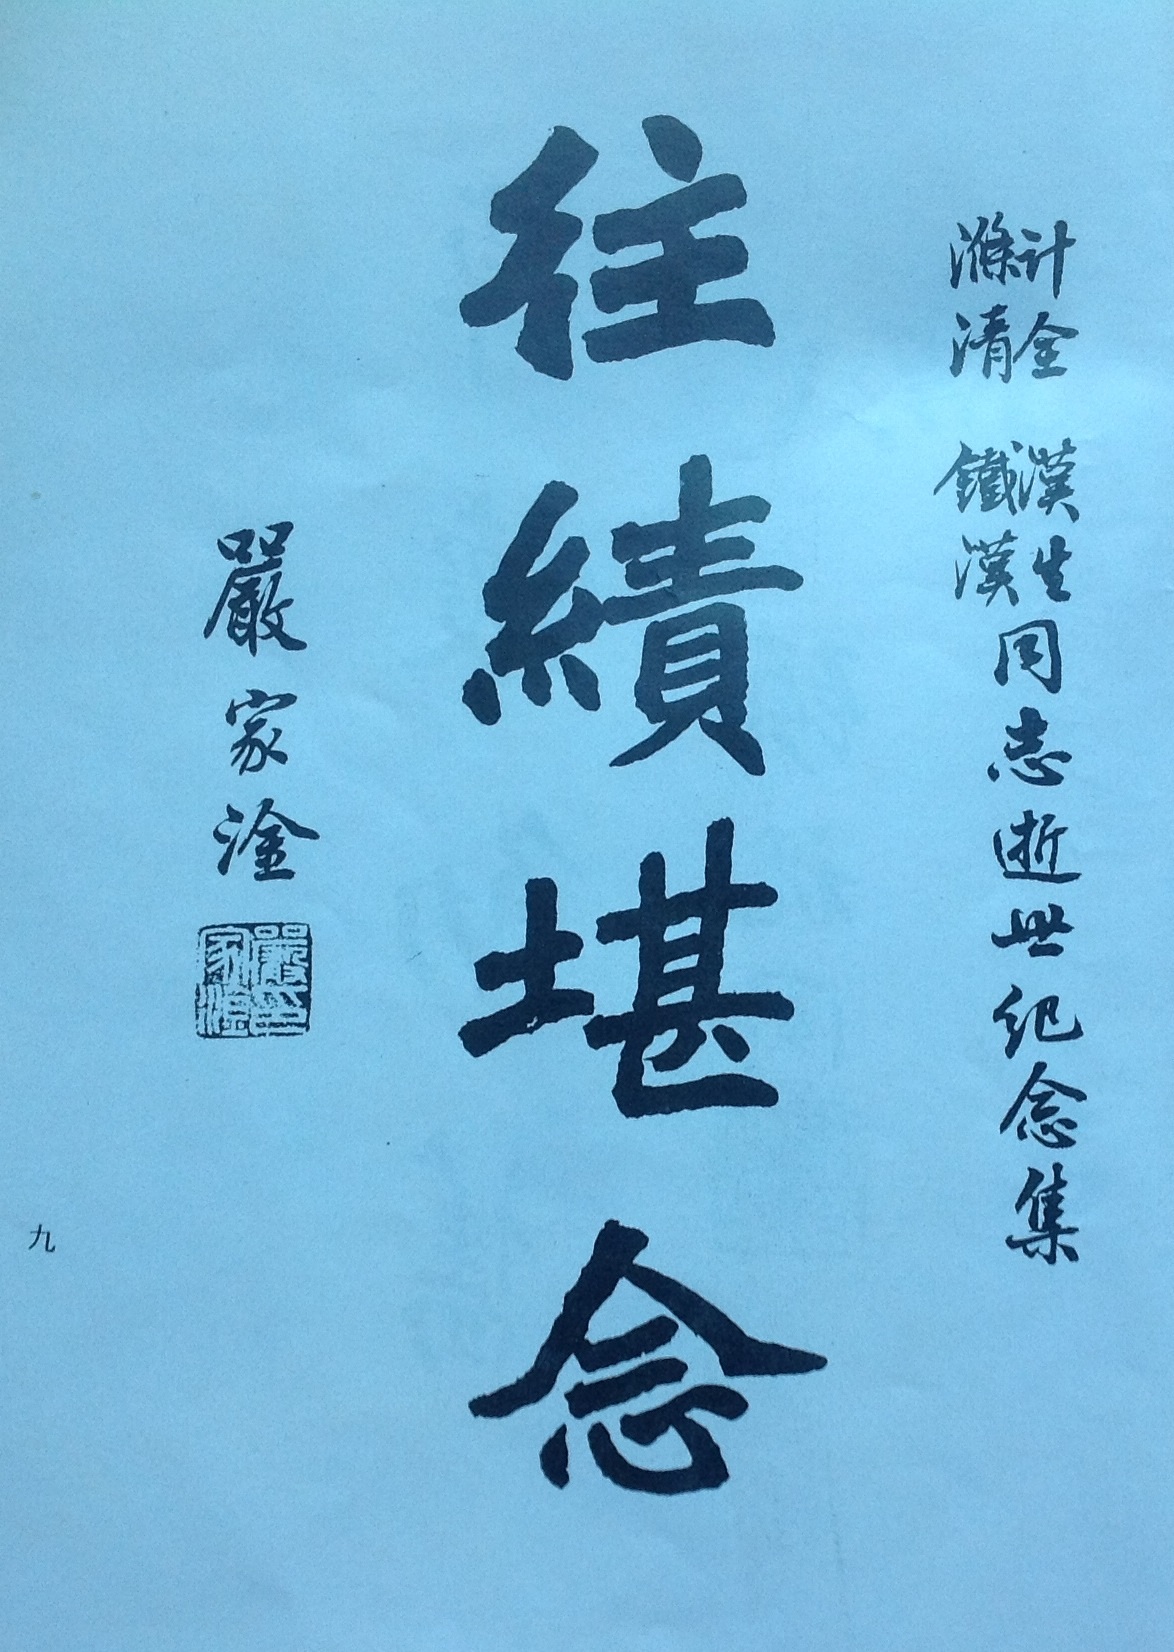 计全 漢生
滌清 鐵漢
同志逝世紀念集
往績堪念
嚴家淦
嚴印
家淦
九